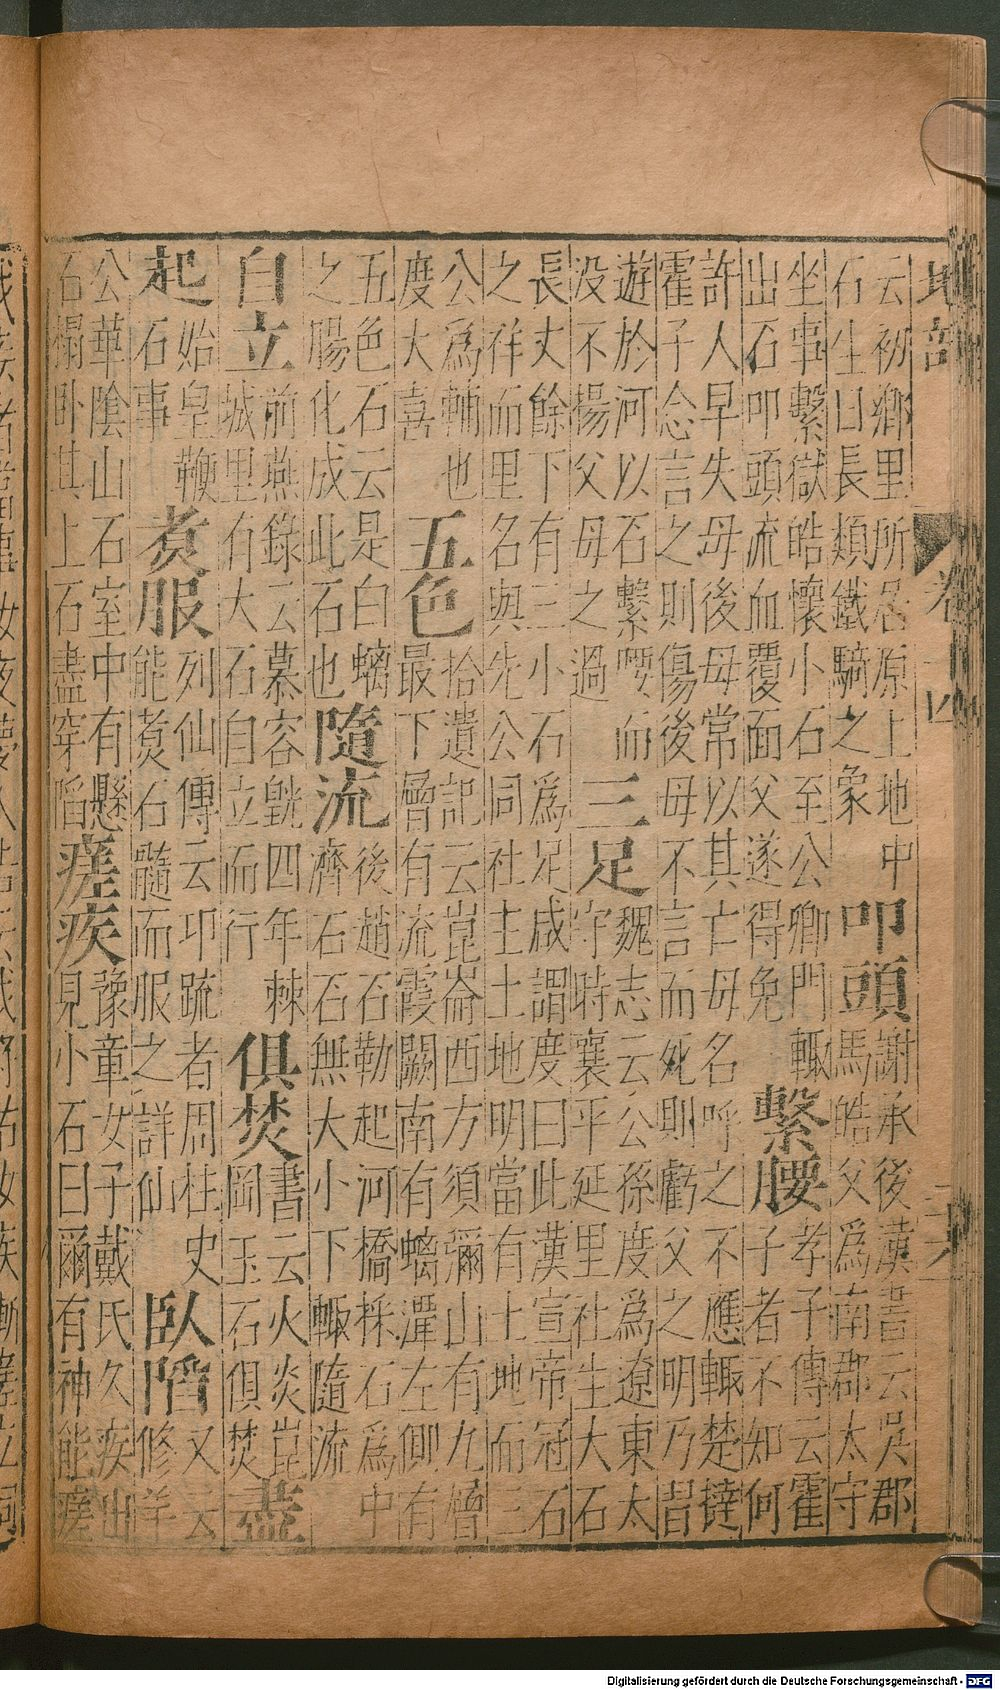 地部
卷
云初鄉里所居原上地中
石生曰長類鐵騎之象
叩頭
謝承後漢書云吳郡
馬皓父爲南郡太守
坐事繫獄皓懷小石至公卿門輙
出石叩頭流血覆面父遂得免
繫腰
孝子傳云霍
子者不知何
許人早失母後母常以其亡母名呼之不應輙楚撻
霍子念言之則傷後母不言而死則虧父之明乃昔
遊於河以石繫腰而
没不揚父母之過
三足
魏志云公孫度爲遼東太
守時襄平延里社生大石
長丈餘下有三小石爲足咸謂度曰此漢宣帝冠石
之祥而里名與先公同社主土地明當有土地而三
公爲輔也
度大喜
五色
拾遺記云崑崙西方須彌山有九層
最下層有流霞闕南有螭潭左側有
五色石云是白螭
之腸化成此石也
隨流
後趙石勒起河橋採石爲中
濟石石無大小下輙隨流
自立
前燕錄云慕容皝四年棘
城里有大石自立而行
俱焚
書云火炎崑
岡玉石俱焚
盡
起
始皇鞭
石事
煑服
列仙傳云卭疏者周柱史
能煑石髓而服之詳仙
臥陷
又云
修羊
公華陰山石室中有懸
石榻卧其上石盡穿陷
瘥疾
豫童女子戴氏久疾出
見小石曰爾有神能瘥
Digitalisierung gefördert durch die Deutsche Forschungsgemeinschaft - DFG